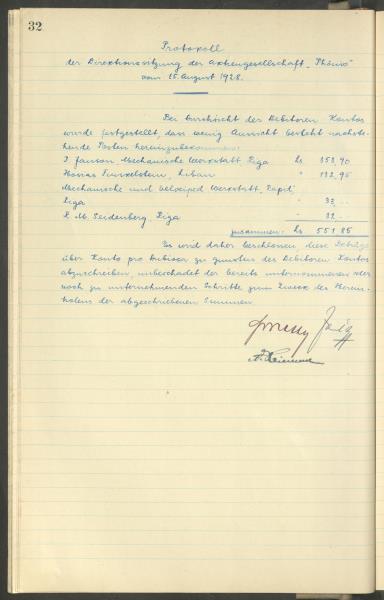 32
Protokoll
der Direktionssitzung der Aktiengesellschaft „Phönix"
vom 15. August 1928.
Bei Durchsicht der Debitoren Kontos
wurde festgestellt, dass wenig Aussicht besteht nachste-
hende Posten hereinzubekommen:
I Janson Mechanische Werkstatt Riga Ls 353,90
" 132,95
Mechanische und Velociped Werkstatt
Riga " 33,--
R. M. Seidenberg, Riga " 32.--
zusammen: Ls 551.85
Es wird daher beschlossen, diese Beträge
über Konto pro Dubiosa zu gunsten des Debitoren Kontos
abzuschreiben, unbeschadet der bereits unternommenen oder
noch zu unternehmenden Schritte zum Zweck des Herein-
holens der abgeschriebenen Summen.